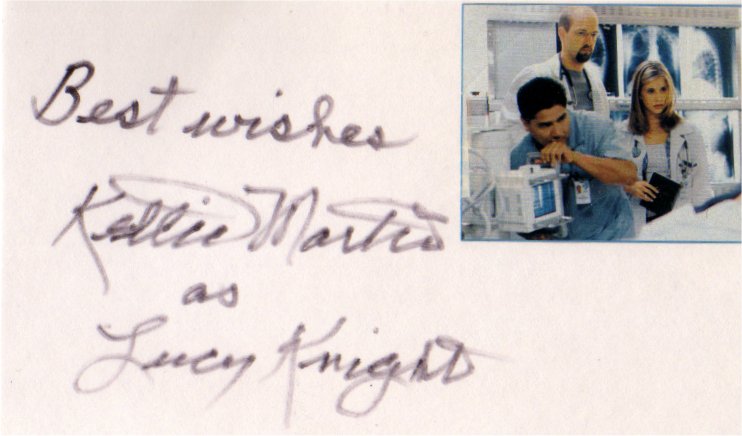 Best wishes
Kellie Martin
as
Lucy Knight